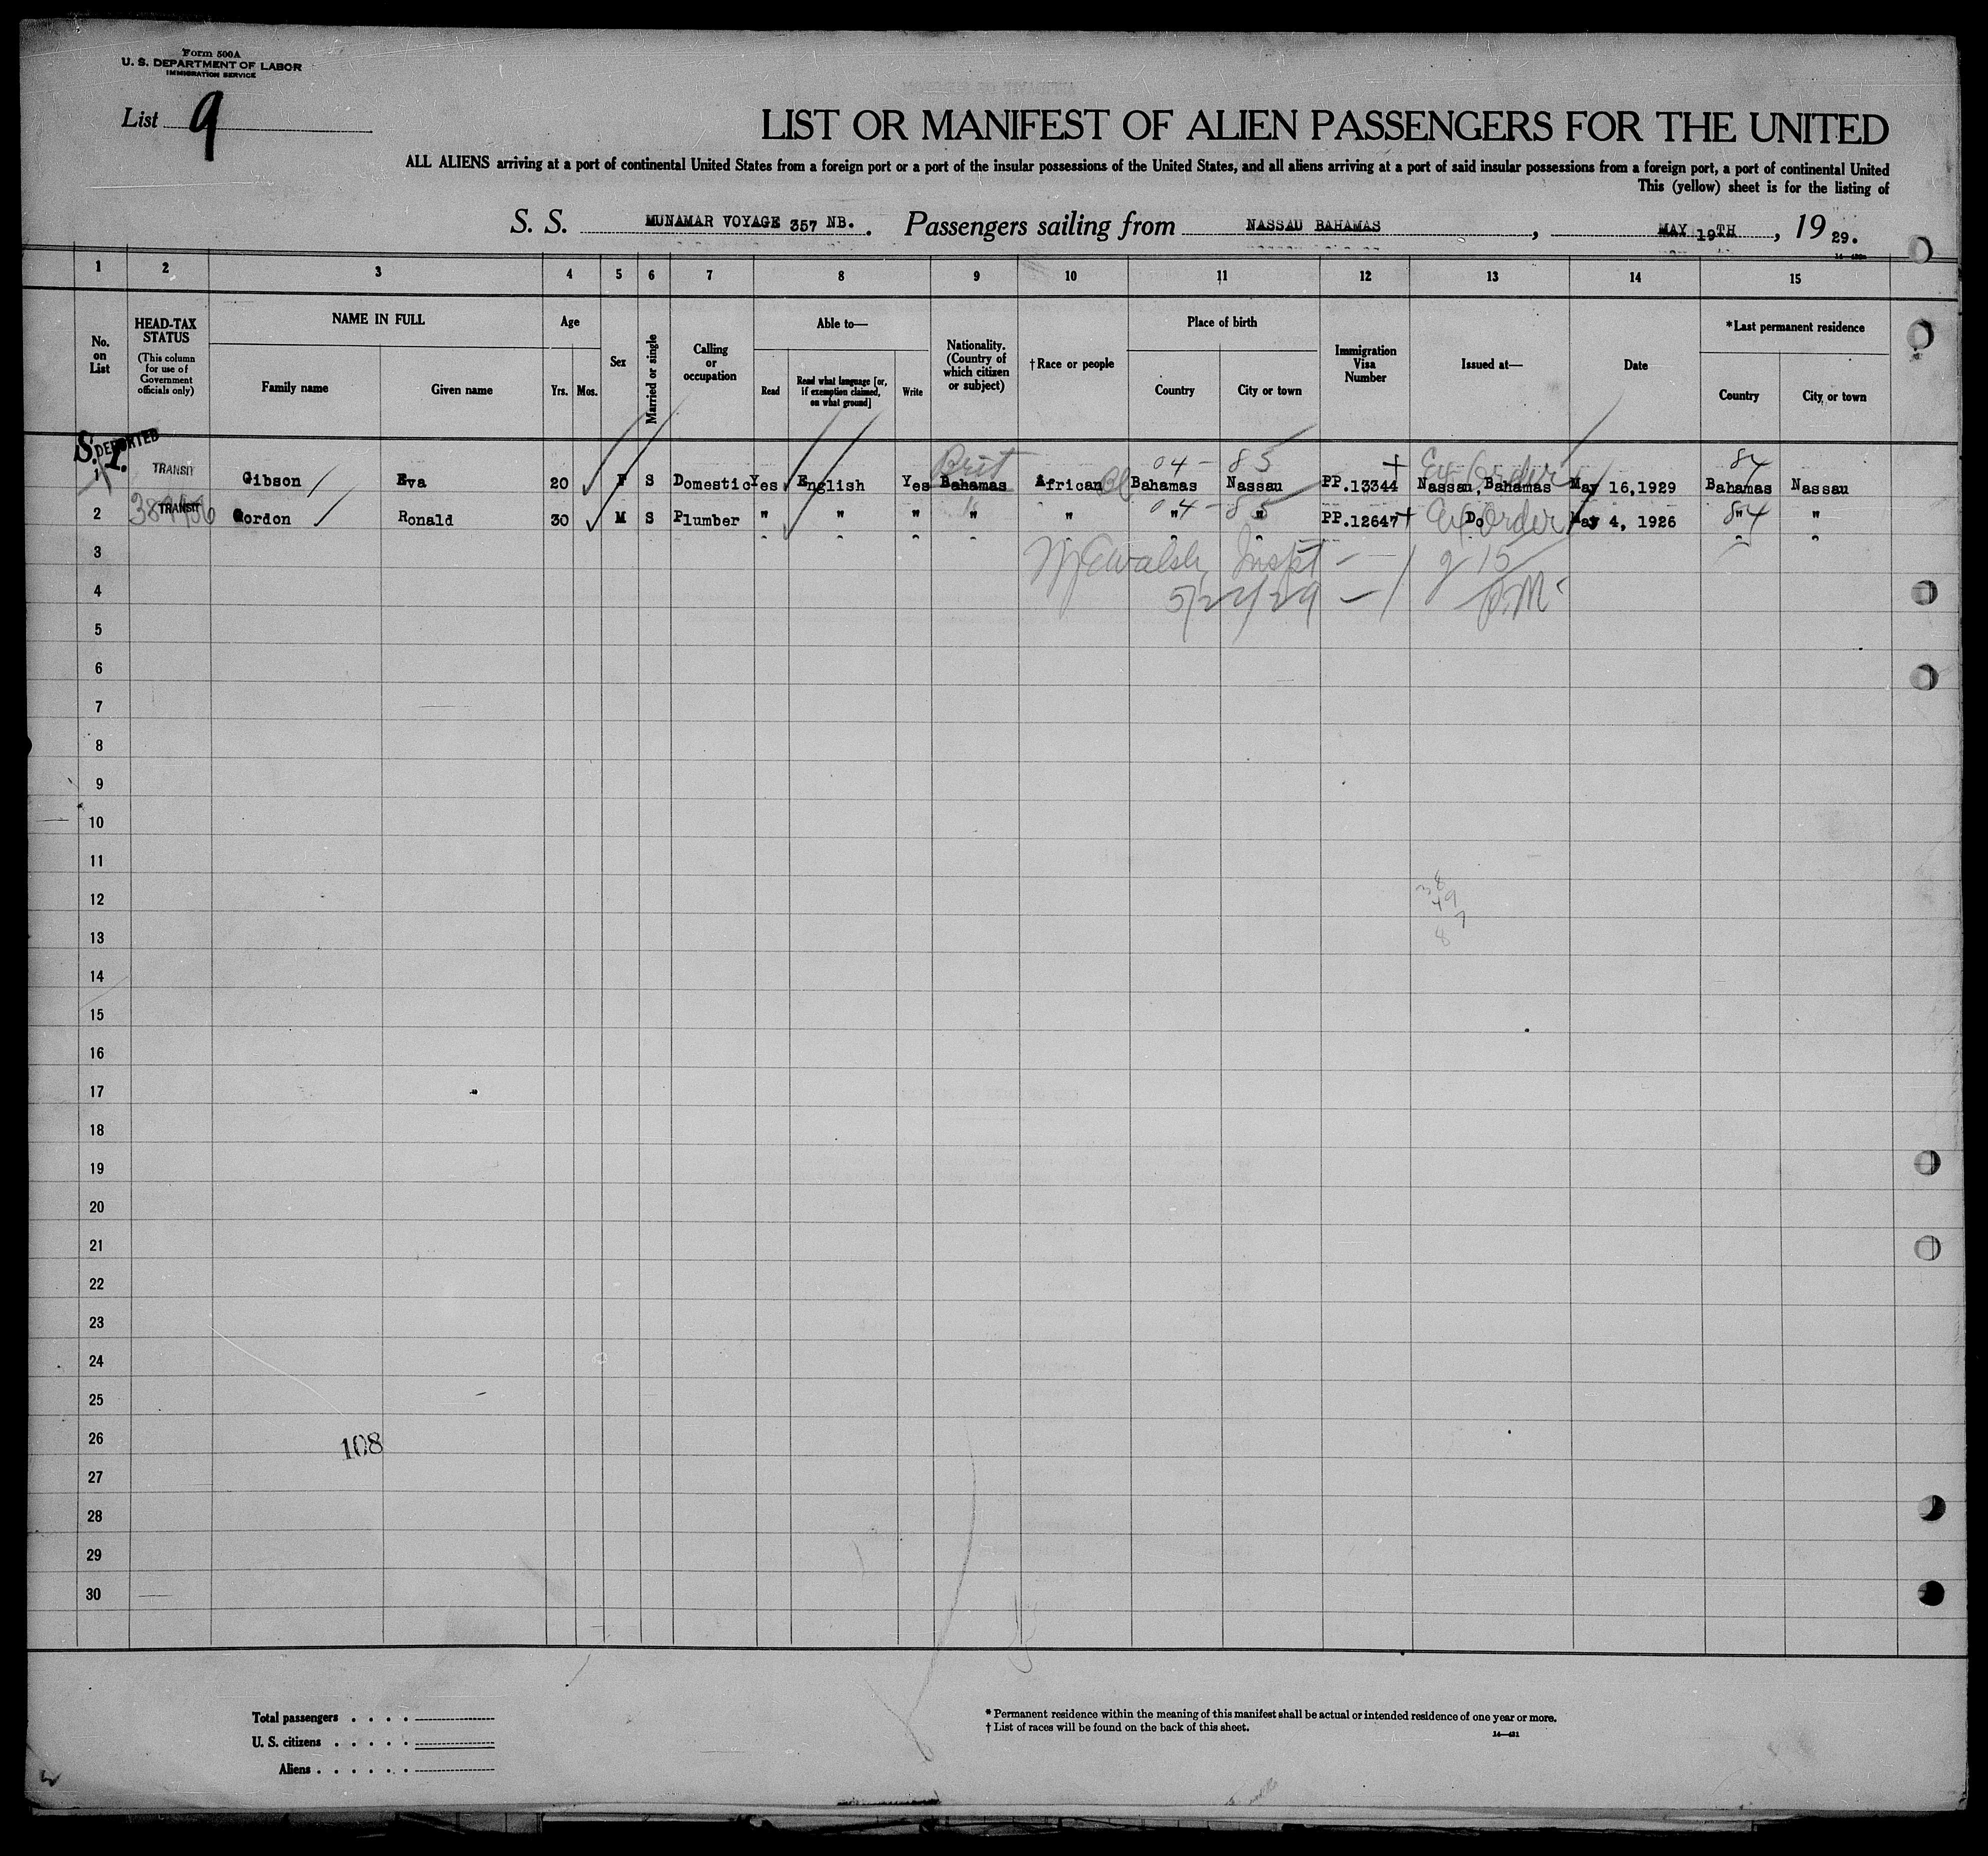 Form 500A
U. S. DEPARTMENT OF LABOR
IMMIGRATION SERVICE
List 9
LIST OR MANIFEST OF ALIEN PASSENGERS FOR THE UNITED
ALL ALIENS arriving at a port of continental United States from a foreign port or a port of the insular possessions of the United States, and all aliens arriving at a port of said insular possessions from a foreign port, a port of continental United
This (yellow) sheet is for the listing of
S. S. MUNAMAR VOYAGE 357 NB. Passengers sailing from NASSAU BAHAMAS, MAY 19TH, 19 29.
1 2 3 4 5 6 7 8 9 10 11 12 13 14 15
No. on List
HEAD-TAX STATUS
(This column for use of Government officials only)
NAME IN FULL
Family name
Given name
Age
Yrs. Mos.
Sex
Married or single
Calling or occupation
Able to—
Read
Read what language [or, if exemption claimed, on what ground]
Write
Nationality. (Country of which citizen or subject)
†Race or people
Place of birth
Country
City or town
Immigration Visa Number
Issued at—
Date
*Last permanent residence
Country
City or town
S. I. DEPORTED
Brit 04 - 85 Ex Order 84
1 TRANSIT Gibson Eva 20 F S Domestic Yes English Yes Bahamas African Bahamas Nassau PP.13344 Nassau, Bahamas May 16,1929 Bahamas Nassau
04 - 85 Ex Order 84
2 TRANSIT Gordon Ronald 30 M S Plumber " " " " " " " PP.12647 Do May 4, 1926 " "
3 Walsh Inspt
4 P.M.
5
6
7
8
9
10
11
12
13
14
15
16
17
18
19
20
21
22
23
24
25
26
108
27
28
29
30
Total passengers . . . .
U. S. citizens . . . . .
Aliens . . . . . .
* Permanent residence within the meaning of this manifest shall be actual or intended residence of one year or more.
† List of races will be found on the back of this sheet.
14—421